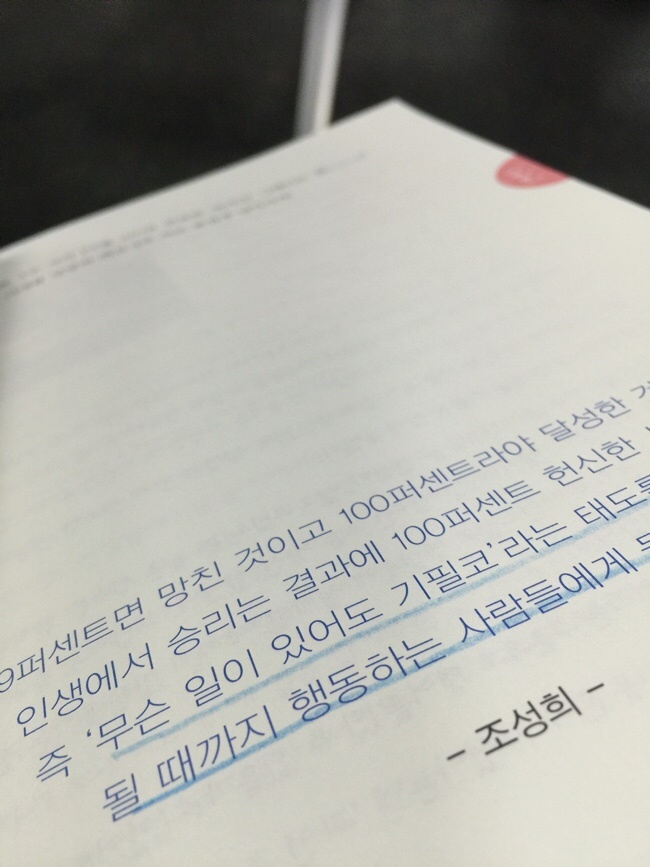 9퍼센트면 망친 것이고 100퍼센트라야 달성한
인생에서 승리는 결과에 100퍼센트 헌신한
즉 ‘무슨 일이 있어도 기필코’라는 태도를
될 때까지 행동하는 사람들에게
- 조성희 -